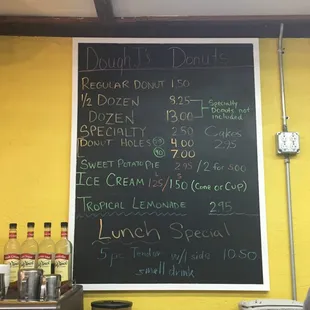 Dough J's Donuts
REGULAR DONUT 1.50
1/2 DOZEN 8.25
DOZEN 13.00
Specialty Donuts not included
SPECIALTY 2.50
Cakes 2.25
DONUT HOLES 4.00
7.00
SWEET POTATO PIE 2.95 / 2 for 5.00
ICE CREAM 1.25/1.50 (CONE or CUP)
TROPICAL LEMONADE 2.95
Lunch Special
5 pc Tender w/1 side 10.50
small drink